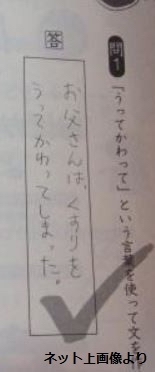 問1
「うってかわって」という言葉を使って文を作
答
お父さんは、くすりを
うってかわってしまった。
ネット上画像より